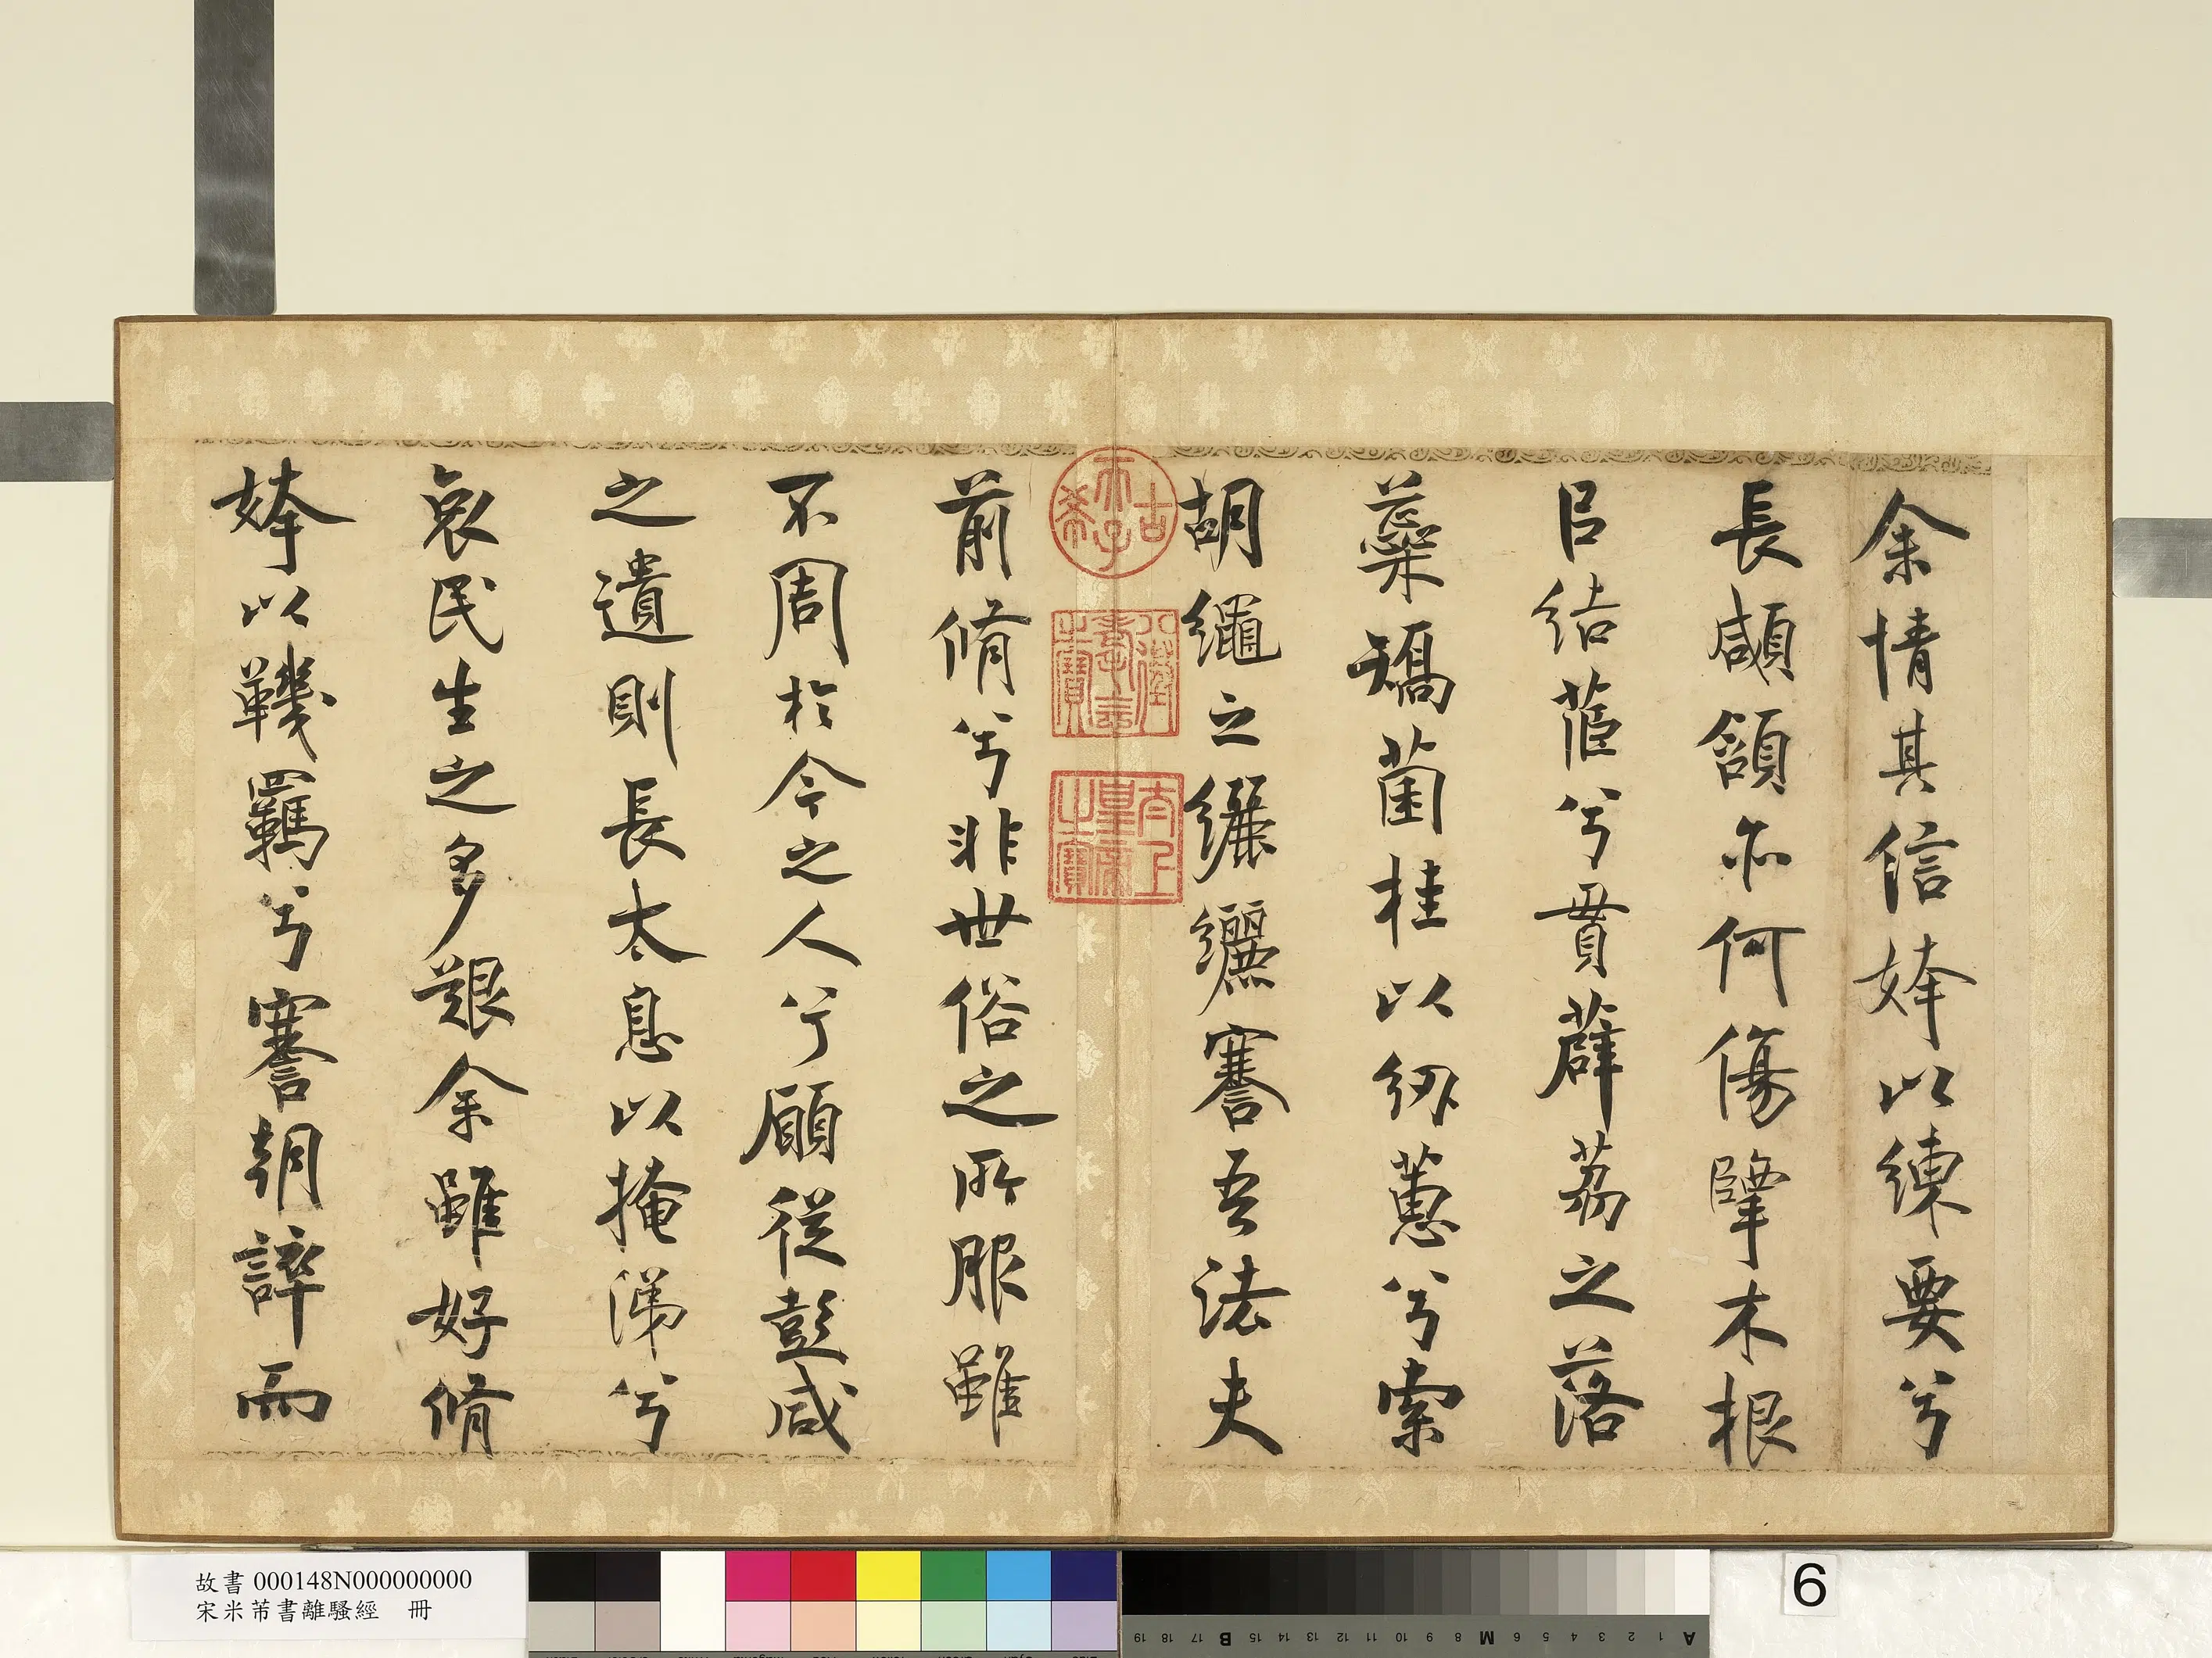 余情其信姱以練要兮
長顑頷亦何傷擥木根
㠯結茝兮貫薜荔之落
蘂矯菌桂以紉蕙兮索
胡繩之纚纚謇吾法夫
前脩兮非世俗之所服雖
不周於今之人兮願從彭咸
之遺則長太息以掩涕兮
哀民生之多艱余雖好脩
姱以鞿羈兮謇朝誶而
古希天子
八徵耄念之寶
太上皇帝之寶
故書 000148N000000000
宋米芾書離騷經 冊
6
A 1 2 3 4 5 6 M 8 9 10 11 12 13 14 15 B 17 18 19